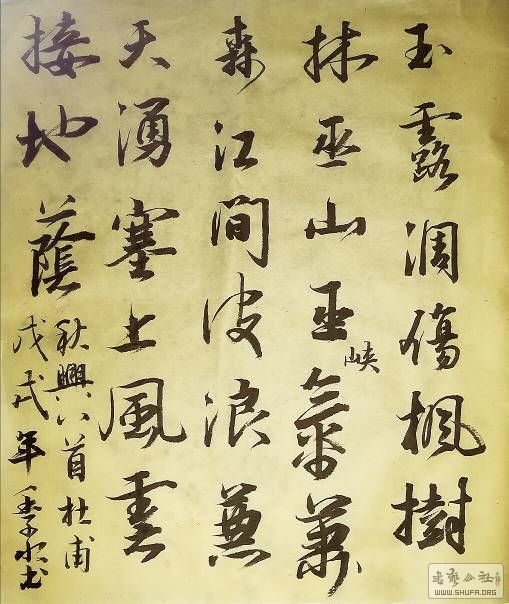 玉露凋傷楓樹
林巫山巫峽氣蕭
森江間波浪兼
天湧塞上風雲
接地蔭
秋興八首杜甫
戊戌年季水书
書藝公社
WWW.SHUFA.ORG